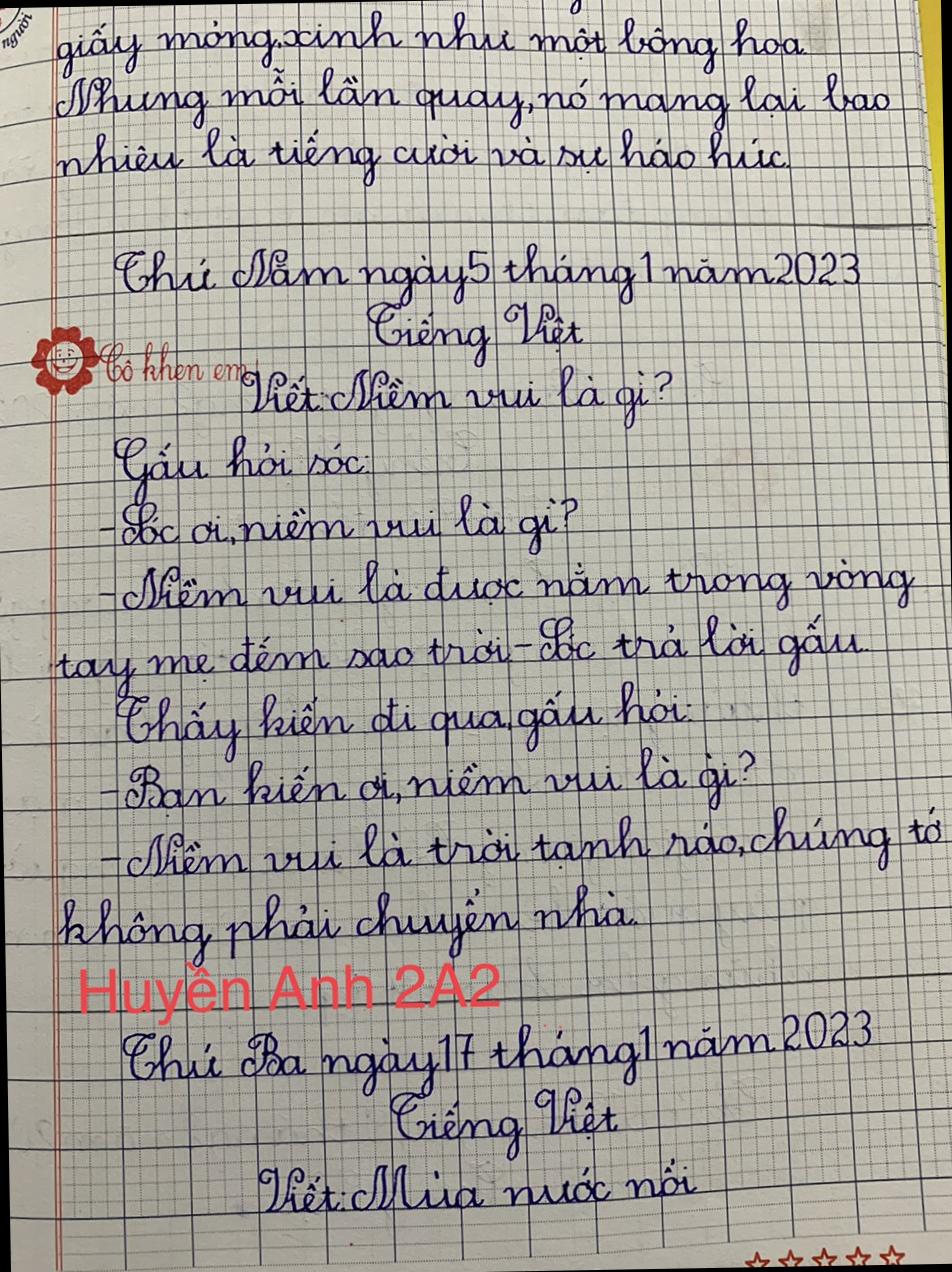 người
giấy mỏng.xinh như một bông hoa
Nhưng mỗi lần quay,nó mang lại bao
nhiêu là tiếng cười và sự háo hức.
Thứ Năm ngày5 tháng1năm2023
Tiếng Việt
Cô khen em
Viết:Niềm vui là gì?
Gấu hỏi sóc:
-Sóc ơi,niềm vui là gì?
-Niềm vui là được nằm trong vòng
tay mẹ đếm sao trời-Sóc trả lời gấu.
Thấy kiến đi qua,gấu hỏi:
-Bạn kiến ơi,niềm vui là gì?
-Niềm vui là trời tạnh ráo,chúng tớ
không phải chuyển nhà.
Huyền Anh 2A2
Thứ Ba ngày17 tháng1năm2023
Tiếng Việt
Viết:Mùa nước nổi